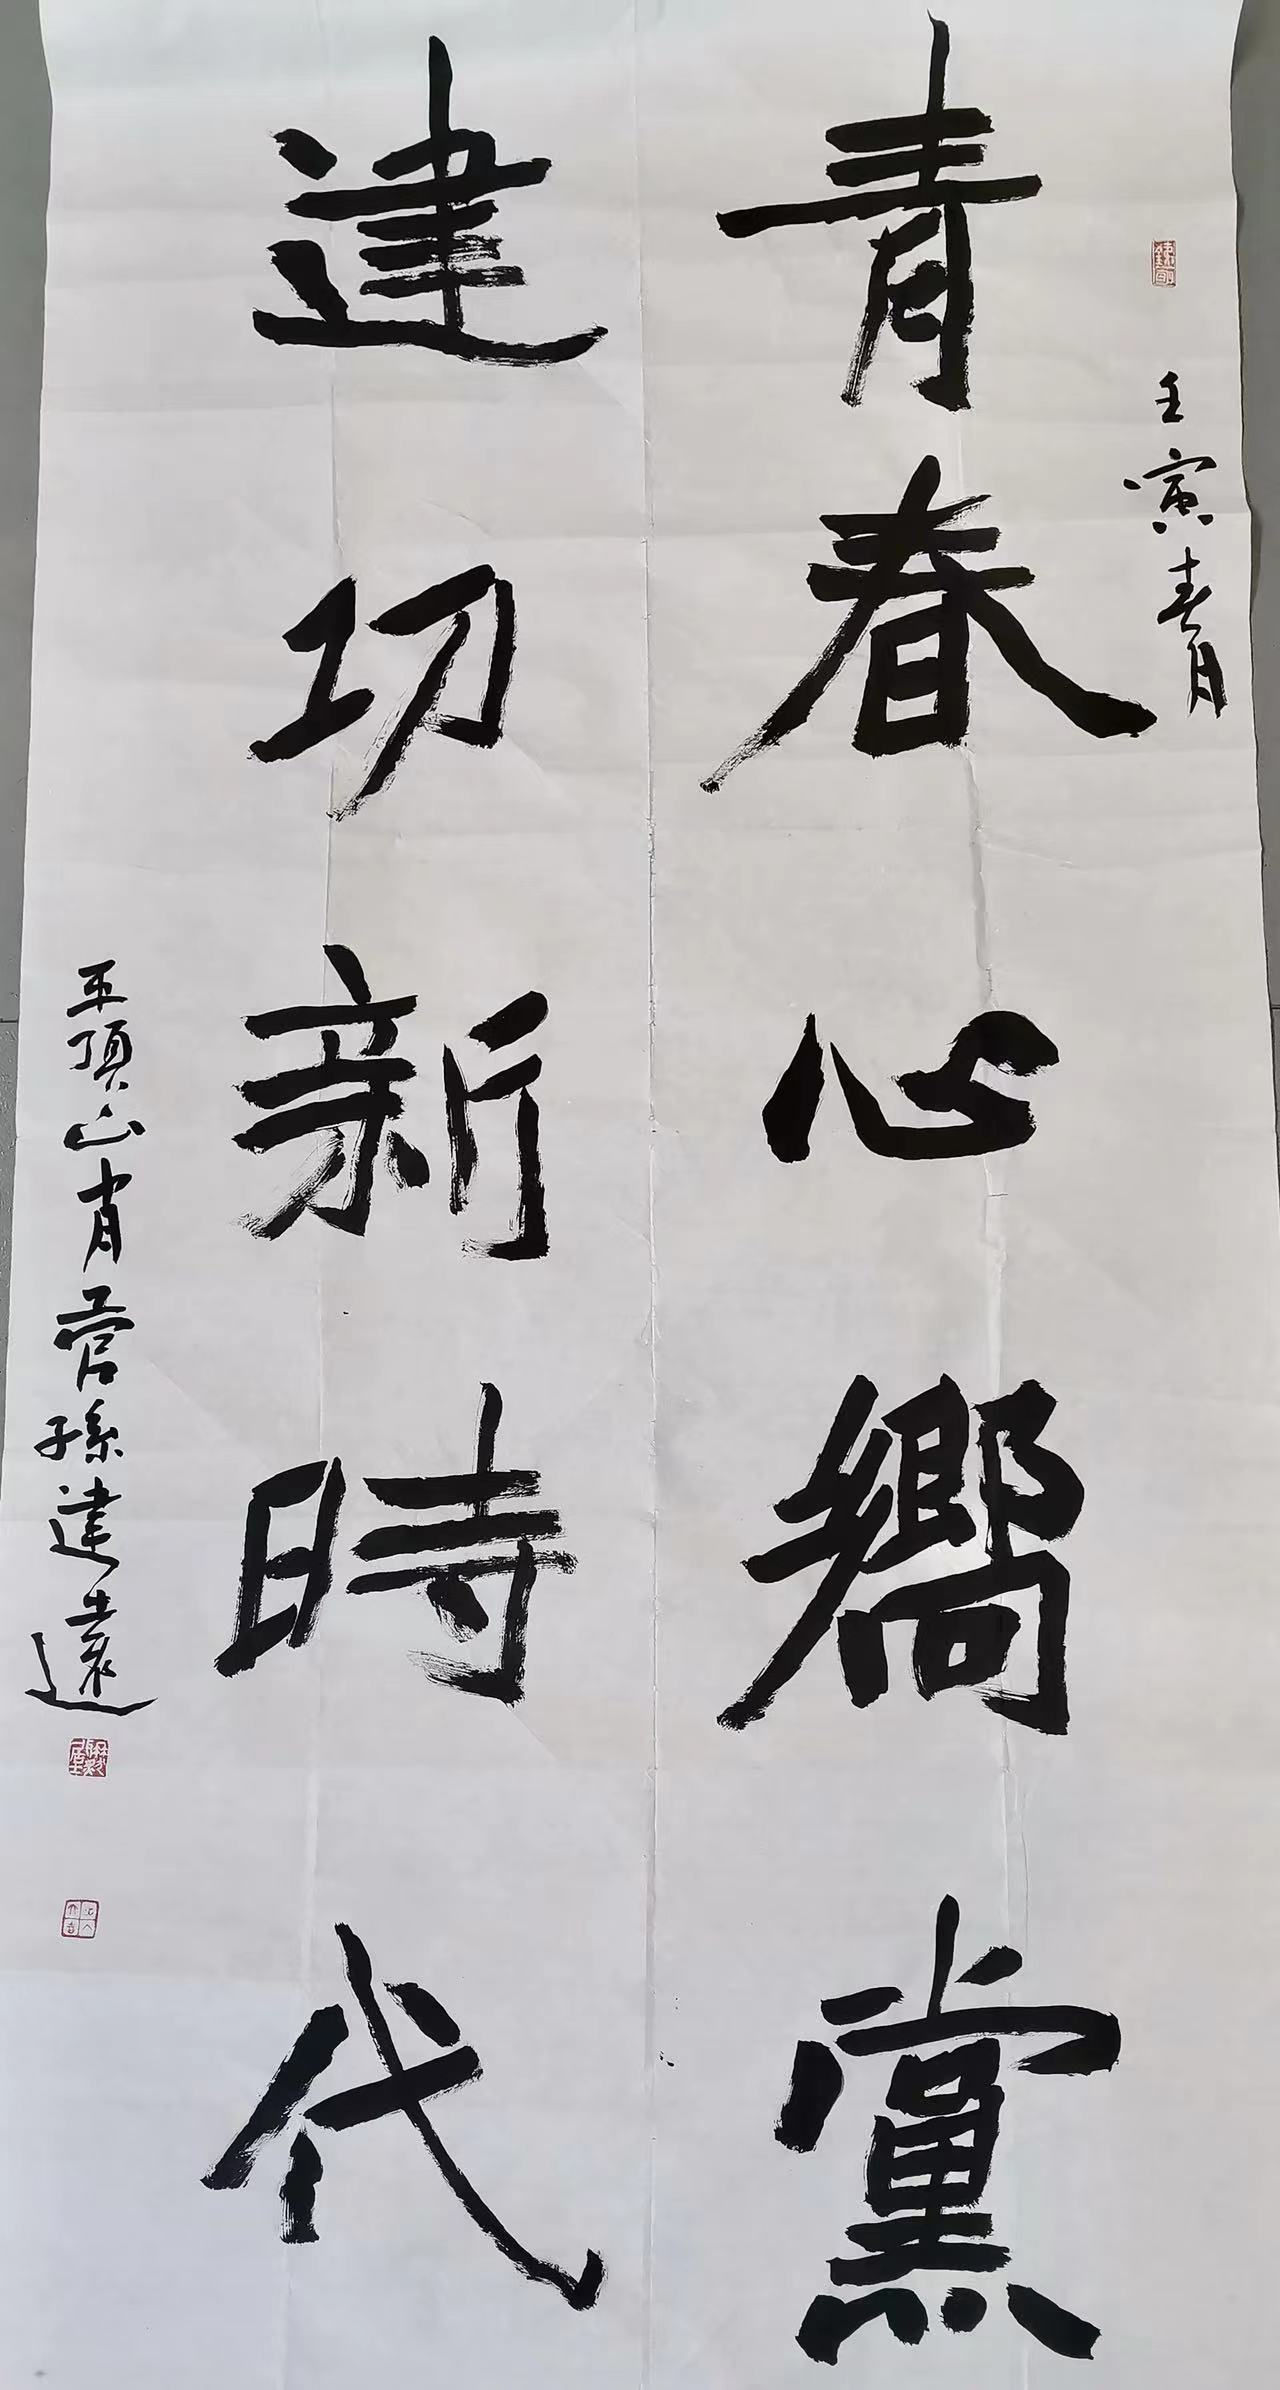 壬寅春月
青春心嚮黨
建功新時代
平頂山肖營孫建遠